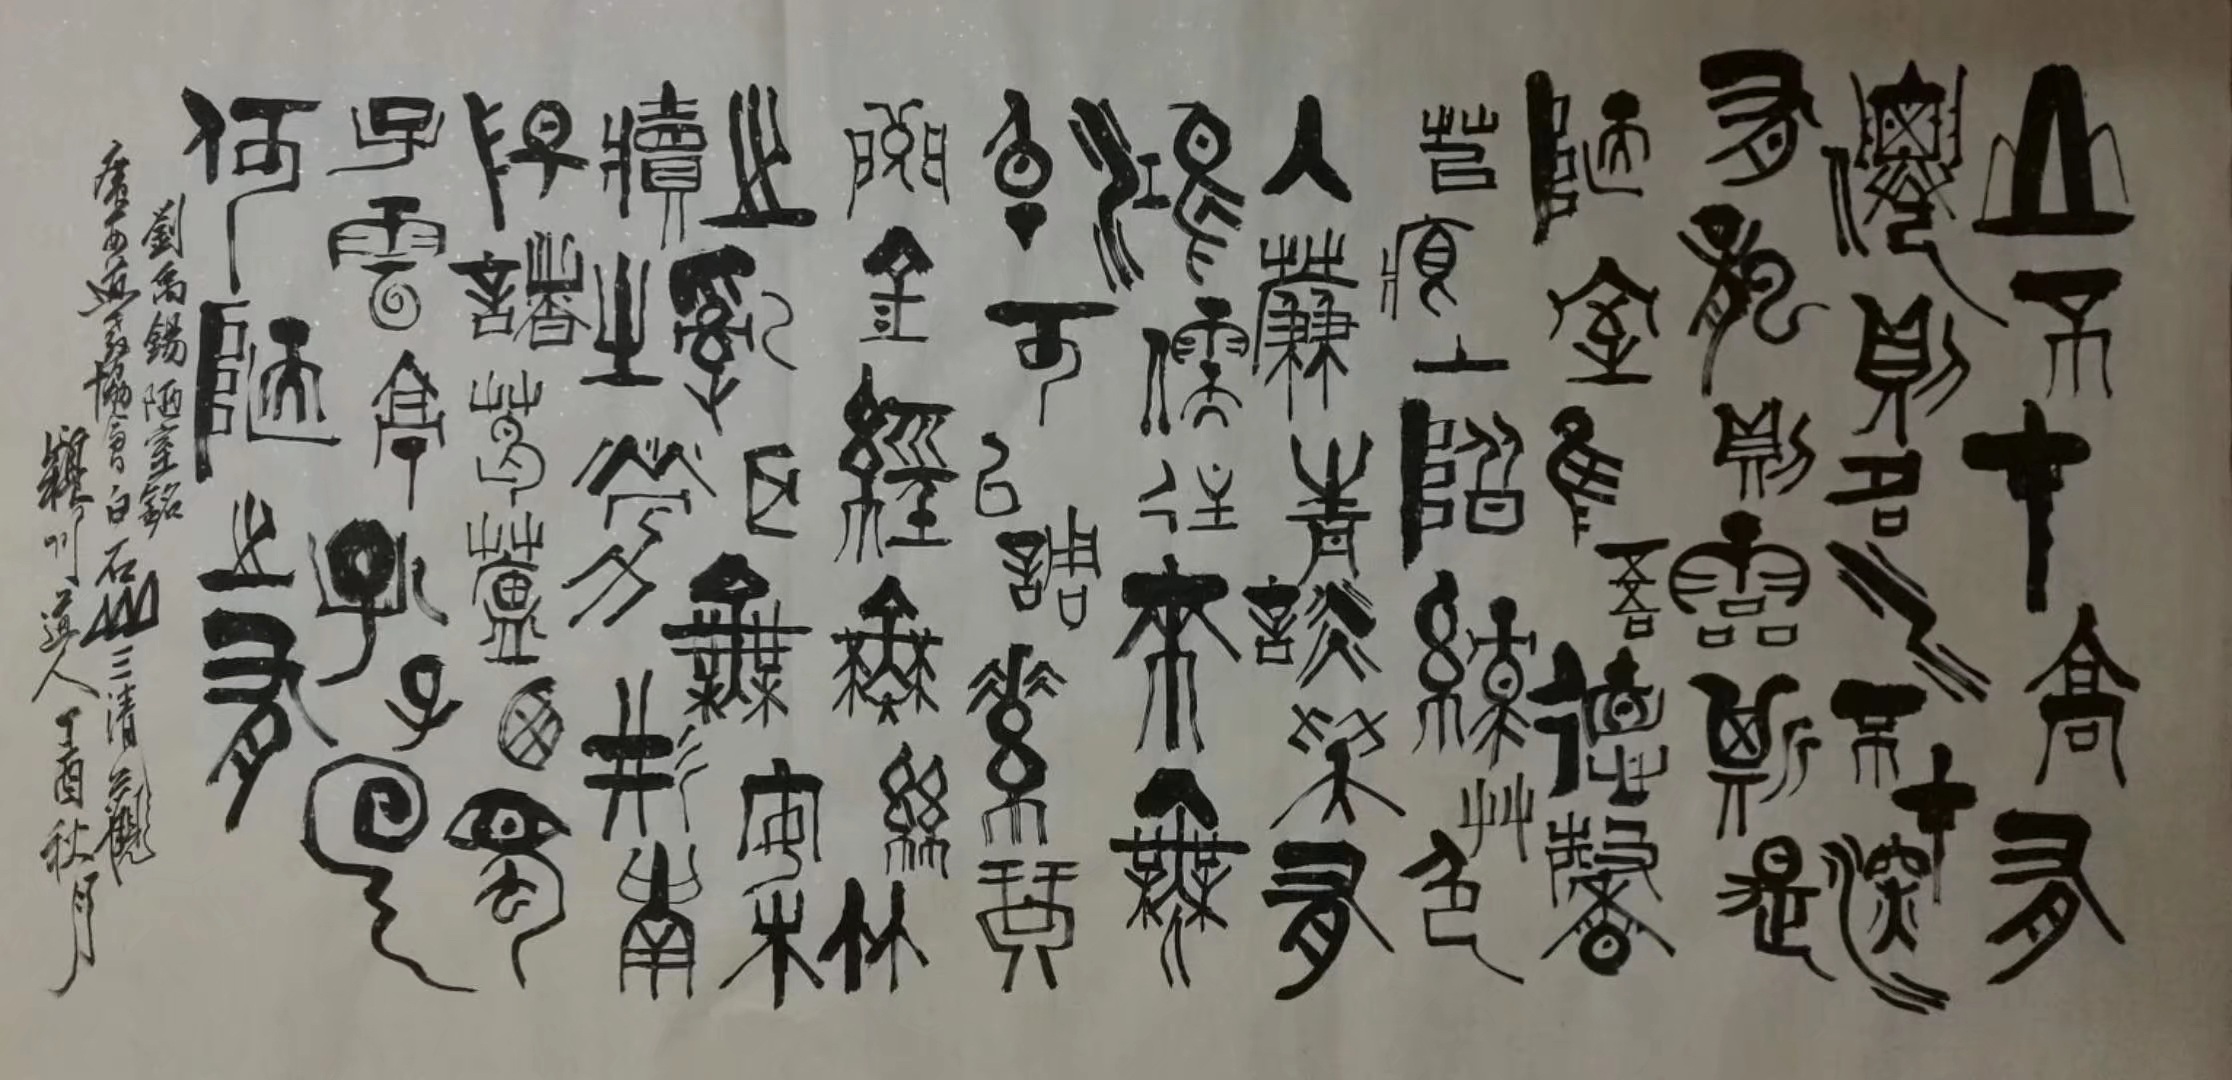 山不在高有
僊則名水不在深
有龍則靈斯是
陋室惟吾德馨
苔痕上階綠艸色
入簾青談笑有
鴻儒往來無
白丁可以調素琴
閱金經無絲竹
之亂耳無案
牘之勞形南
陽諸葛廬西蜀
子雲亭孔子云
何陋之有
劉禹錫陋室銘
廣西道教協會白石山三清觀
穎川道人丁酉秋月